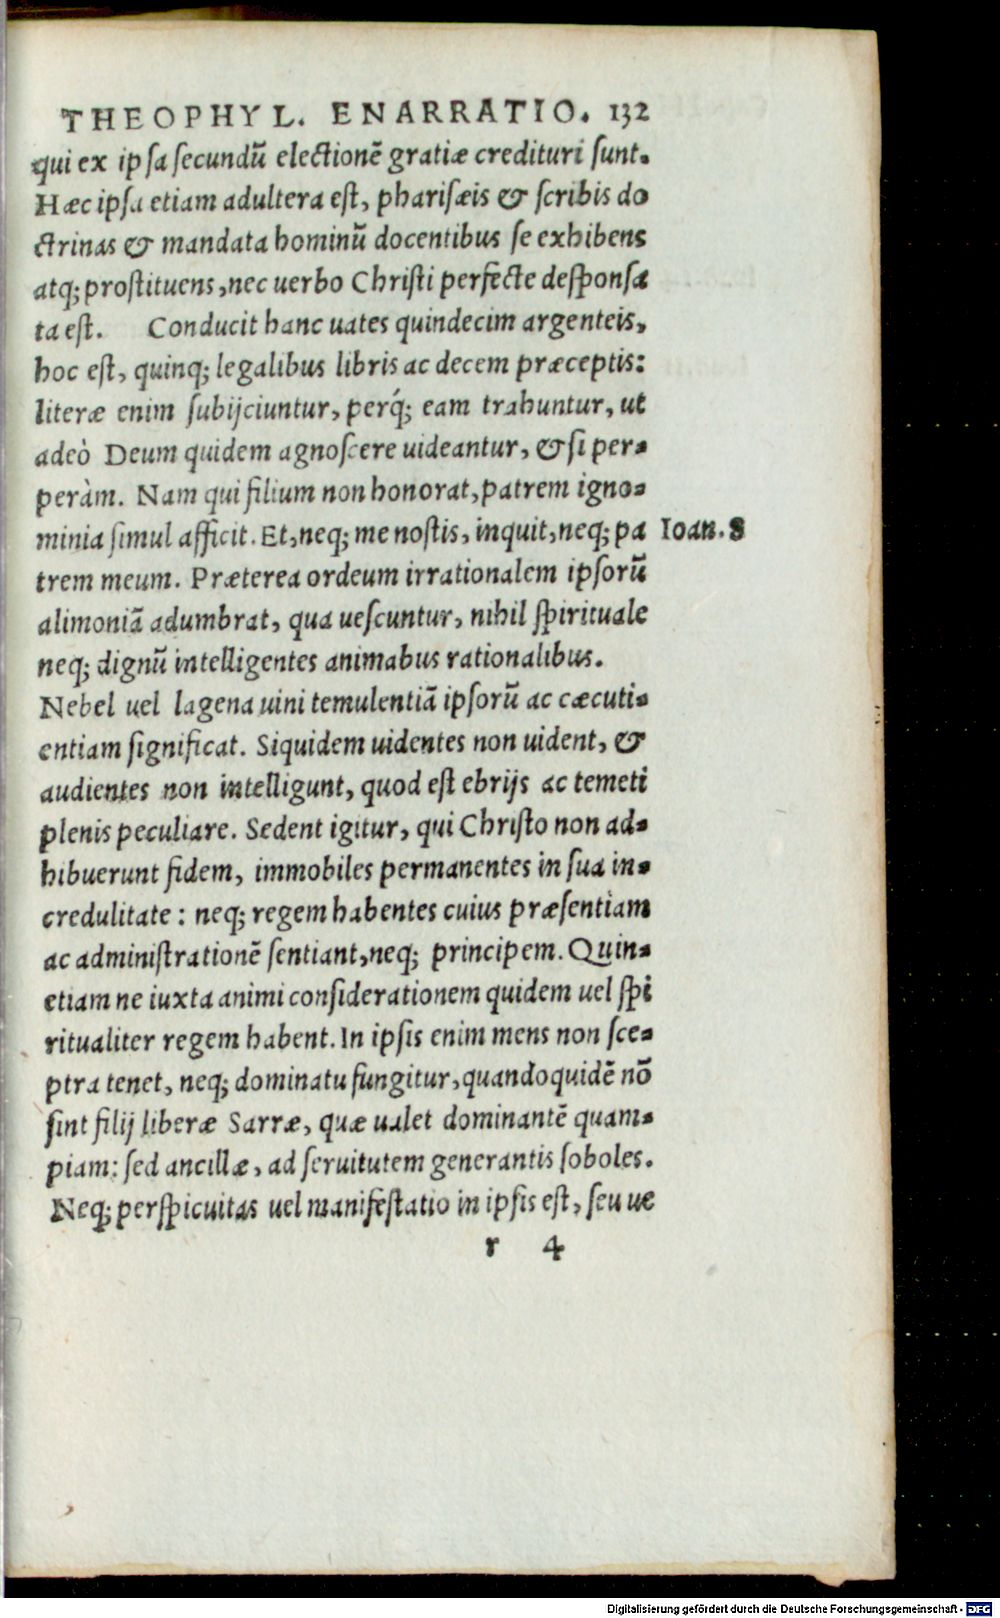 THEOPHYL. ENARRATIO. 132
qui ex ipsa secundũ electionẽ gratiæ credituri sunt.
Hæc ipsa etiam adultera est, pharisæis & scribis do
ctrinas & mandata hominũ docentibus se exhibens
atq; prostituens, nec uerbo Christi perfecte desponsa
ta est. Conducit hanc uates quindecim argenteis,
hoc est, quinq; legalibus libris ac decem præceptis:
literæ enim subijciuntur, perq́; eam trahuntur, ut
adeò Deum quidem agnoscere uideantur, & si per-
peràm. Nam qui filium non honorat, patrem igno-
minia simul afficit. Et, neq; me nostis, inquit, neq; pa Ioan. 8
trem meum. Præterea ordeum irrationalem ipsorũ
alimoniã adumbrat, qua uescuntur, nihil spirituale
neq; dignũ intelligentes animabus rationalibus.
Nebel uel lagena uini temulentiã ipsorũ ac cæcuti-
entiam significat. Siquidem uidentes non uident, &
audientes non intelligunt, quod est ebrijs ac temeti
plenis peculiare. Sedent igitur, qui Christo non ad-
hibuerunt fidem, immobiles permanentes in sua in-
credulitate: neq; regem habentes cuius præsentiam
ac administrationẽ sentiant, neq; principem. Quin-
etiam ne iuxta animi considerationem quidem uel spi
ritualiter regem habent. In ipsis enim mens non sce-
ptra tenet, neq; dominatu fungitur, quandoquidẽ nõ
sint filij liberæ Sarræ, quæ ualet dominantẽ quam-
piam: sed ancillæ, ad seruitutem generantis soboles.
Neq; perspicuitas uel manifestatio in ipsis est, seu ue
r 4
Digitalisierung gefördert durch die Deutsche Forschungsgemeinschaft - DFG